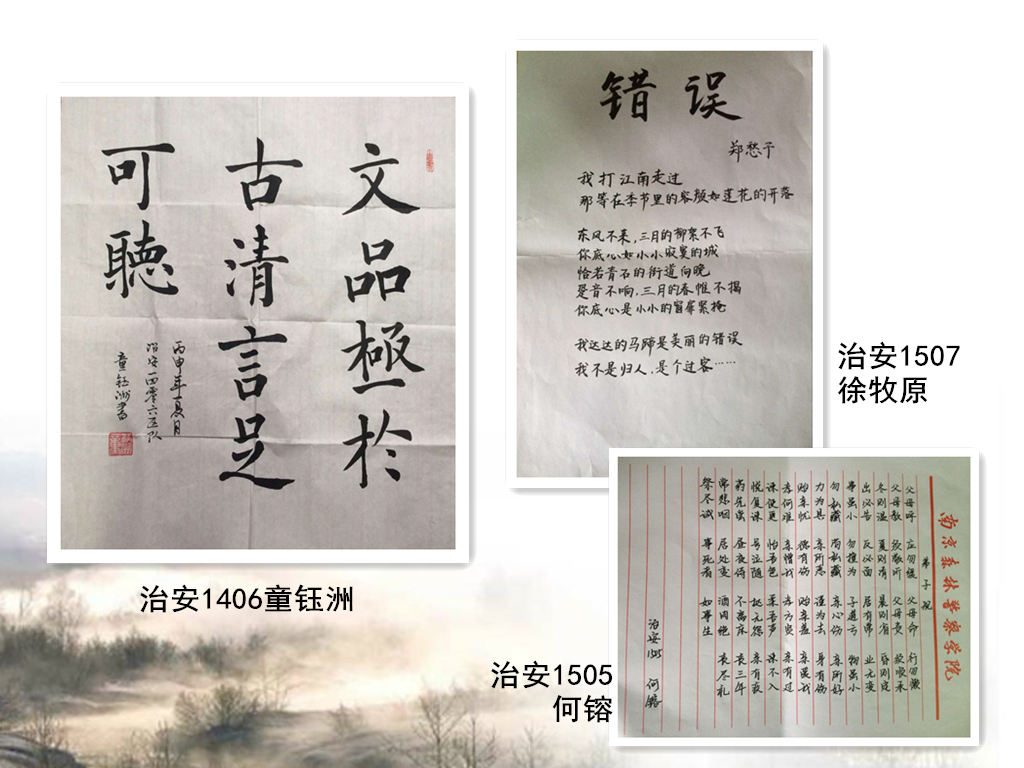 文品極於
古清言足
可聽
丙申年夏月
治安一四零六区队
童钰洲書
治安1406童钰洲
错误
郑愁予
我打江南走过
那等在季节里的容颜如莲花的开落
东风不来,三月的柳絮不飞
你底心如小小寂寞的城
恰若青石的街道向晚
跫音不响,三月的春帷不揭
你底心是小小的窗扉紧掩
我达达的马蹄是美丽的错误
我不是归人,是个过客……
治安1507
徐牧原
南京森林警察学院
弟子规
父母呼 应勿缓 父母命 行勿懒
父母教 须敬听 父母责 须顺承
冬则温 夏则凊 晨则省 昏则定
出必告 反必面 居有常 业无变
事虽小 勿擅为 子道亏 物虽小
勿私藏 苟私藏 亲心伤 亲所好
力为具 亲所恶 谨为去 身有伤
贻亲忧 德有伤 贻亲羞 亲爱我
孝何难 亲憎我 孝方贤 亲有过
谏使更 怡吾色 柔吾声 谏不入
悦复谏 号泣随 挞无怨 亲有疾
药先尝 昼夜侍 不离床 丧三年
常悲咽 居处变 酒肉绝 丧尽礼
祭尽诚 事死者 如事生
治安1505 何镕
治安1505
何镕